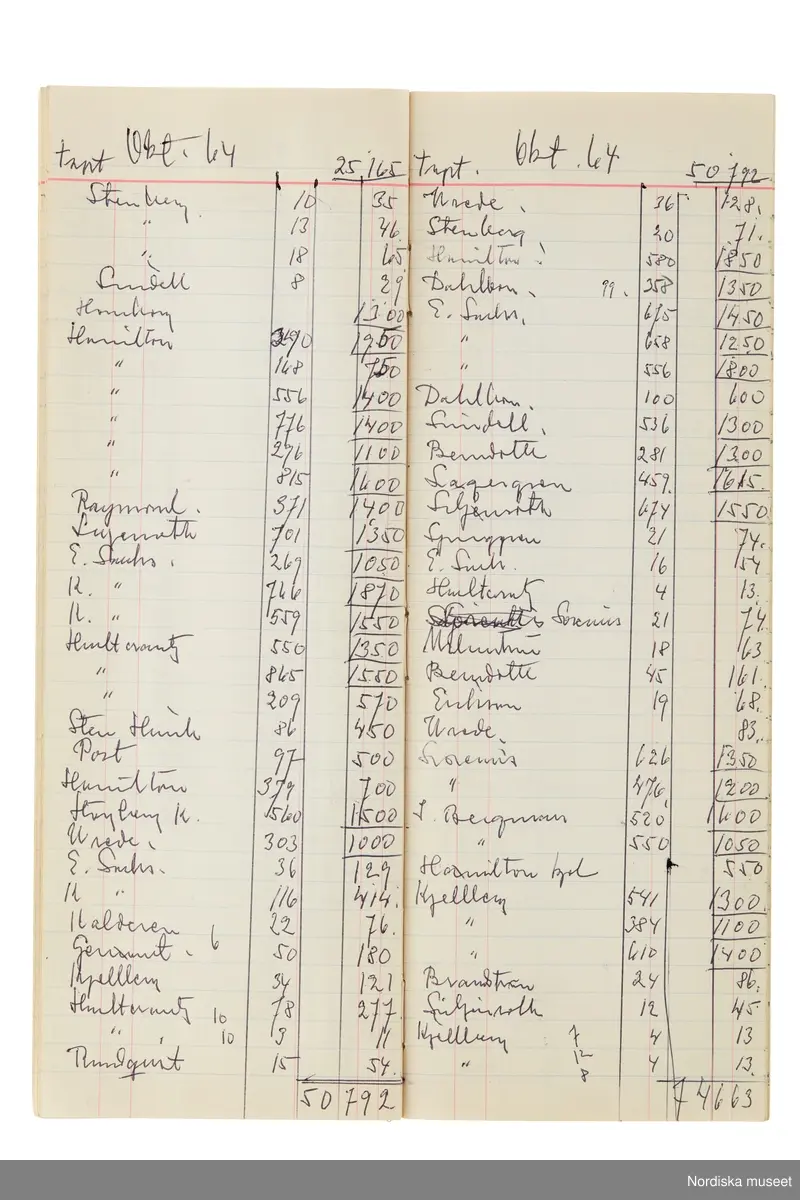 trspt Okt. 64 25.165
Stenberg. 10 35
" 13 46
" 18 65
Sundell 8 29
1300
Hamilton 1950
" 168 750
" 556 1400
" 776 1400
" 276 1100
" 815 1600
Raymond. 371 1400
701 1350
E. Sachs. 269 1050
K. " 766 1870
K. " 559 1550
Hultcrantz 550 1350
" 865 1550
" 209 570
Sten 86 450
Post 97 500
Hamilton 379 700
K. 560 1500
Wrede. 303 1000
E. Sachs. 36 129
K " 116 414.
Kalderen 22 76.
6 50 180
Kjellberg 34 121
Hultcrantz 10 78 277
" 10 3 11
Rundquist 15 54.
50 792
trspt. Okt. 64 50 792
Wrede. 36 128.
Stenberg 20 71.
Hamilton 580 1850
Dahlbom. 99. 358 1350
E. Sachs. 675 1450
" 658 1250
" 556 1800
Dahlbom. 100 600
Sundell. 536 1300
Bernadotte 281 1300
Lagergren 459. 1615.
Liljenroth 674 1550
21 74.
E. Sachs. 16 54
Hultcrantz 4 13.
Sorenius 21 74.
18 63
Bernadotte 45 161.
Erikson 19 68.
Wrede. 83.
Sorenius 626 1350
" 476. 1200
L. Bergman 520 1600
" 550 1050
Hamilton kpl 550
Kjellberg 541 1300.
" 384 1100
" 610 1400
Brandström 24 86.
Liljenroth 12 45.
Kjellberg 7 4 13
" 12 4 13.
8
74663
Nordiska museet